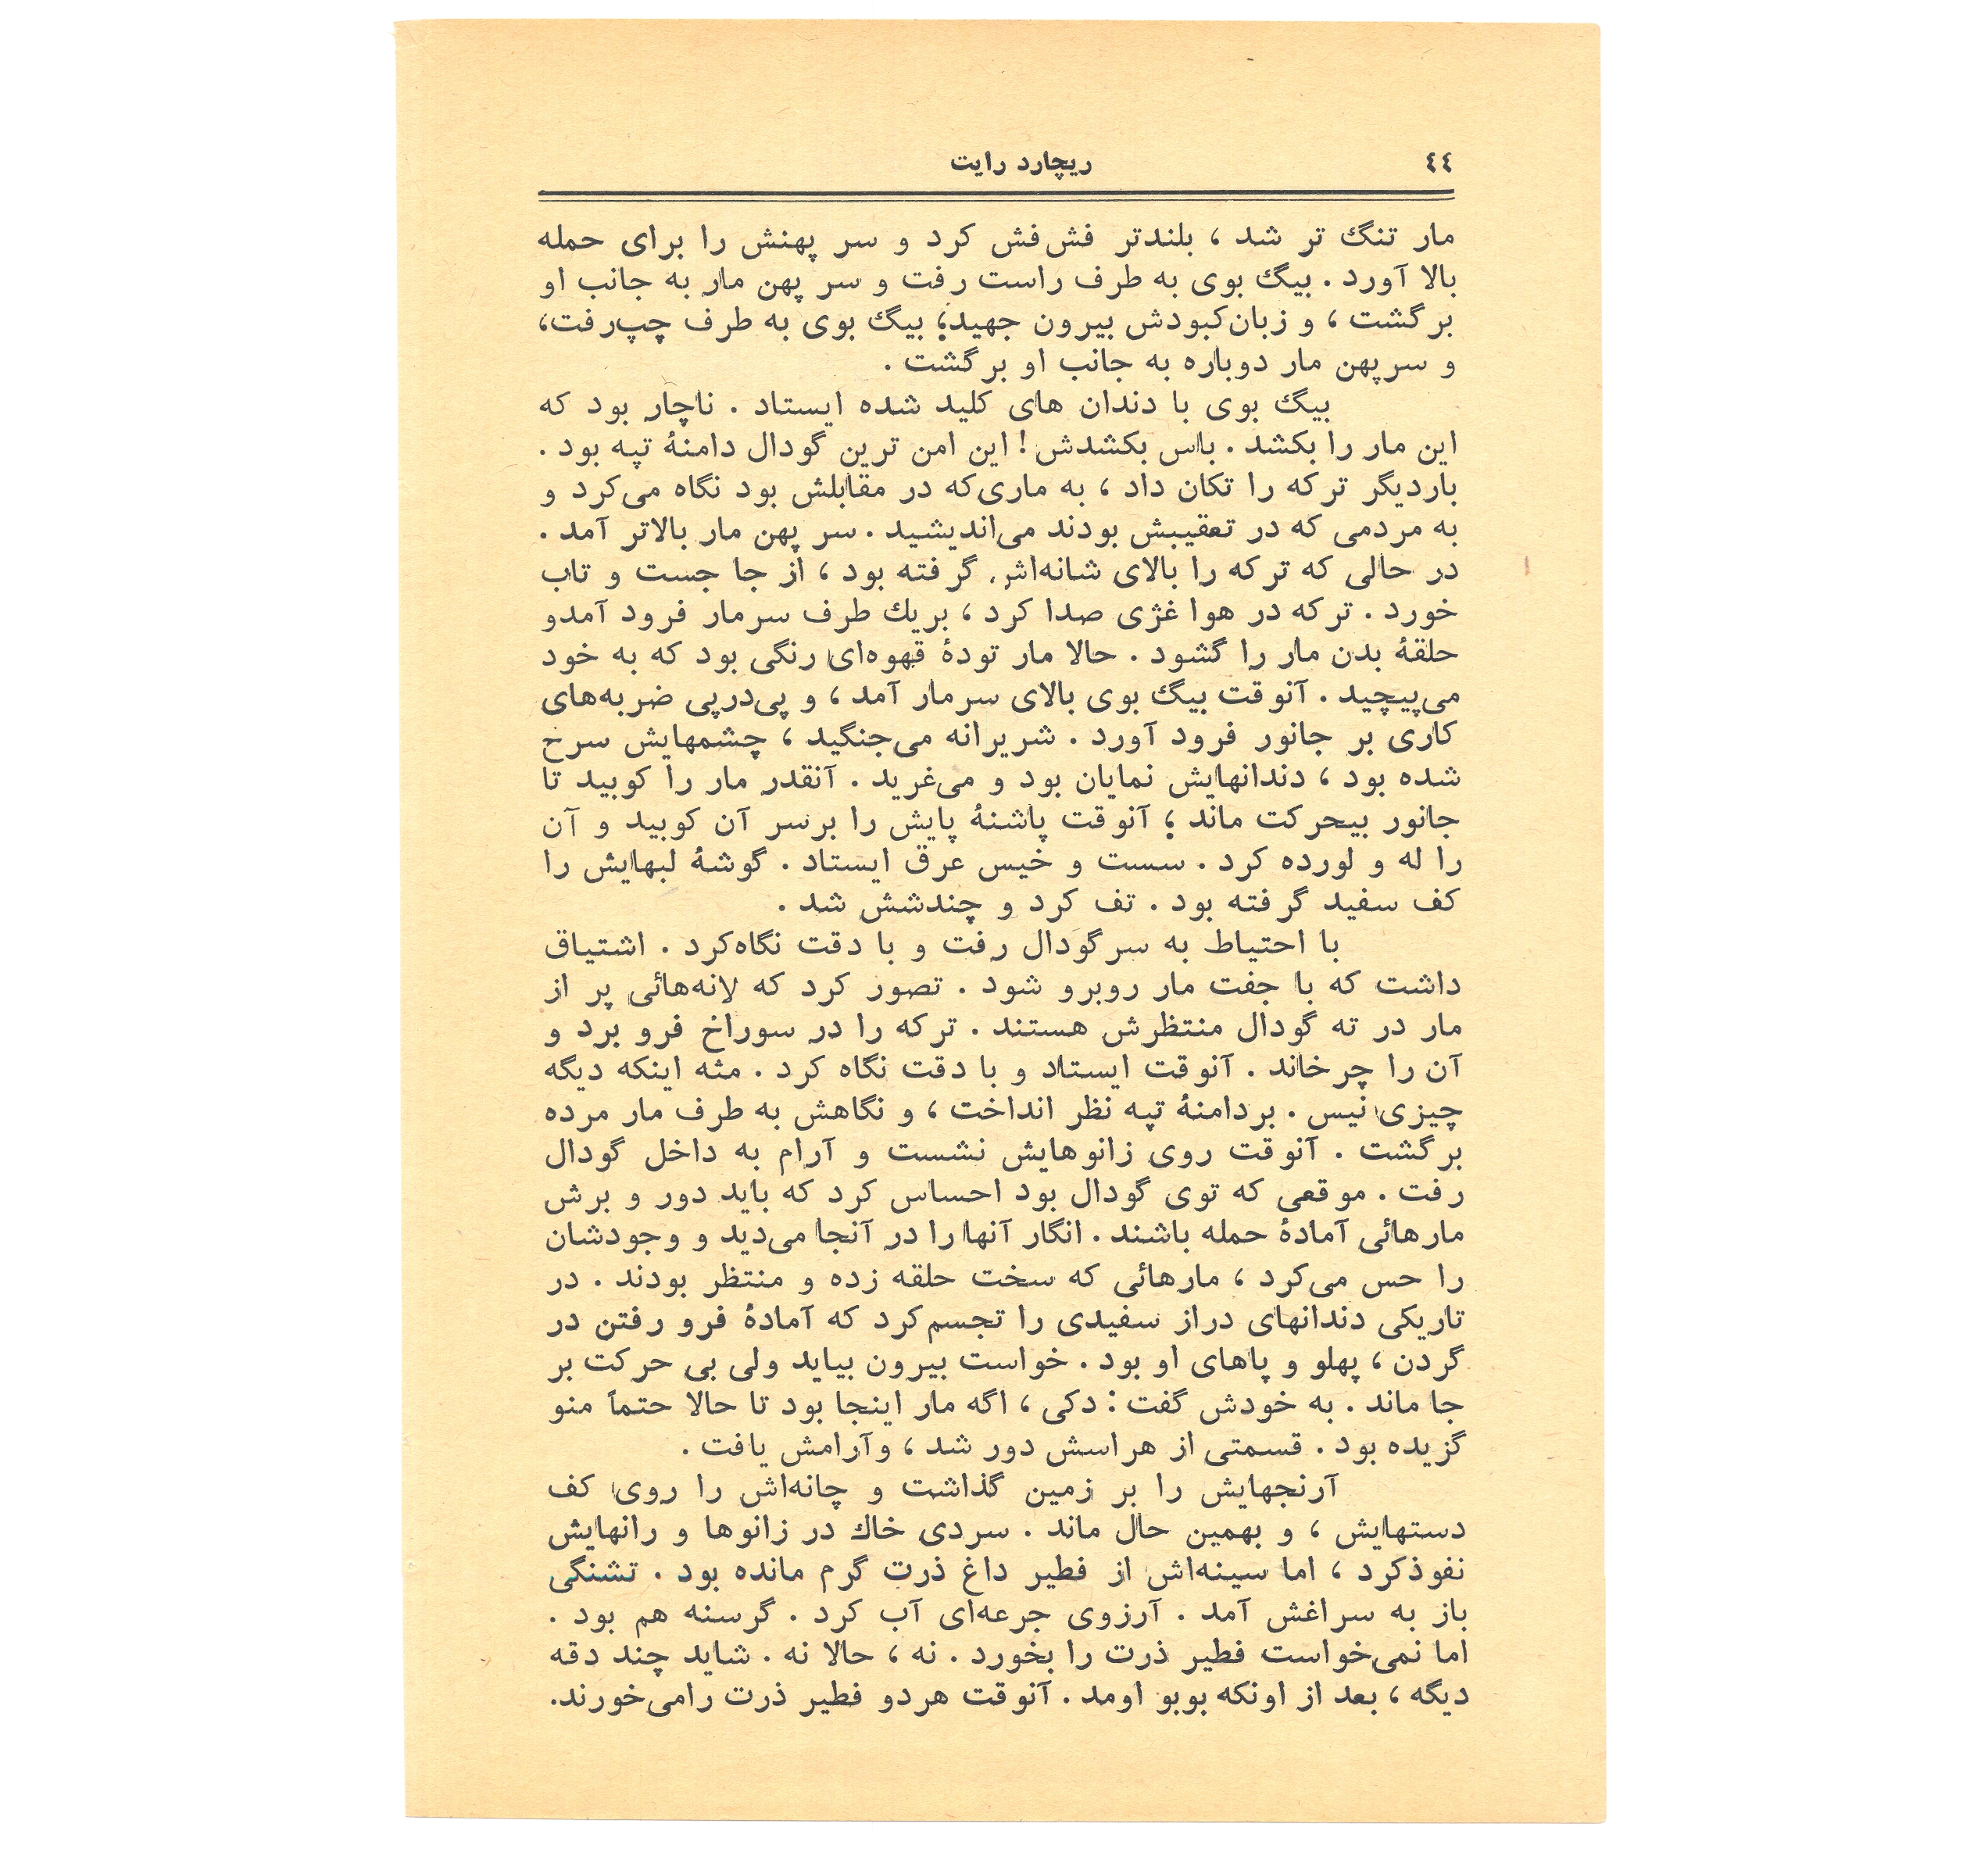 ٤٤
ریچارد رایت
مار تنگ تر شد ، بلندتر فش‌فش کرد و سر پهنش را برای حمله
بالا آورد . بیگ بوی به طرف راست رفت و سر پهن مار به جانب او
برگشت ، و زبان‌کبودش بیرون جهید؛ بیگ بوی به طرف چپ‌رفت،
و سرپهن مار دوباره به جانب او برگشت .
بیگ بوی با دندان های کلید شده ایستاد . ناچار بود که
این مار را بکشد . باس بکشدش ! این امن ترین گودال دامنهٔ تپه بود .
باردیگر ترکه را تکان داد ، به ماری‌که در مقابلش بود نگاه می‌کرد و
به مردمی که در تعقیبش بودند می‌اندیشید . سر پهن مار بالاتر آمد .
در حالی که ترکه را بالای شانه‌اش گرفته بود ، از جا جست و تاب
خورد . ترکه در هوا غژی صدا کرد ، بریك طرف سرمار فرود آمدو
حلقهٔ بدن مار را گشود . حالا مار تودهٔ قهوه‌ای رنگی بود که به خود
می‌پیچید . آنوقت بیگ بوی بالای سرمار آمد ، و پی‌درپی ضربه‌های
کاری بر جانور فرود آورد . شریرانه می‌جنگید ، چشمهایش سرخ
شده بود ، دندانهایش نمایان بود و می‌غرید . آنقدر مار را کوبید تا
جانور بیحرکت ماند ؛ آنوقت پاشنهٔ پایش را برسر آن کوبید و آن
را له و لورده کرد . سست و خیس عرق ایستاد . گوشهٔ لبهایش را
کف سفید گرفته بود . تف کرد و چندشش شد .
با احتیاط به سرگودال رفت و با دقت نگاه‌کرد . اشتیاق
داشت که با جفت مار روبرو شود . تصور کرد که لانه‌هائی پر از
مار در ته گودال منتظرش هستند . ترکه را در سوراخ فرو برد و
آن را چرخاند . آنوقت ایستاد و با دقت نگاه کرد . مثه اینکه دیگه
چیزی نیس . بردامنهٔ تپه نظر انداخت ، و نگاهش به طرف مار مرده
برگشت . آنوقت روی زانوهایش نشست و آرام به داخل گودال
رفت . موقعی که توی گودال بود احساس کرد که باید دور و برش
مارهائی آمادهٔ حمله باشند . انگار آنها را در آنجا می‌دید و وجودشان
را حس می‌کرد ، مارهائی که سخت حلقه زده و منتظر بودند . در
تاریکی دندانهای دراز سفیدی را تجسم‌کرد که آمادهٔ فرو رفتن در
گردن ، پهلو و پاهای او بود . خواست بیرون بیاید ولی بی حرکت بر
جا ماند . به خودش گفت : دکی ، اگه مار اینجا بود تا حالا حتماً منو
گزیده بود . قسمتی از هراسش دور شد ، وآرامش یافت .
آرنجهایش را بر زمین گذاشت و چانه‌اش را روی کف
دستهایش ، و بهمین حال ماند . سردی خاك در زانوها و رانهایش
نفوذکرد ، اما سینه‌اش از فطیر داغ ذرت گرم مانده بود . تشنگی
باز به سراغش آمد . آرزوی جرعه‌ای آب کرد . گرسنه هم بود .
اما نمی‌خواست فطیر ذرت را بخورد . نه ، حالا نه . شاید چند دقه
دیگه ، بعد از اونکه بوبو اومد . آنوقت هردو فطیر ذرت رامی‌خورند.